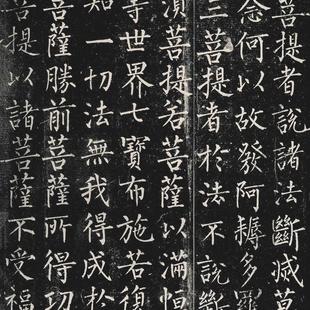 菩提者說諸法斷滅莫
念何以故發阿耨多羅
三菩提者於法不說斷
湏菩提若菩薩以滿恒
等世界七寶布施若復
知一切法無我得成於
菩薩勝前菩薩所得功
菩提以諸菩薩不受福